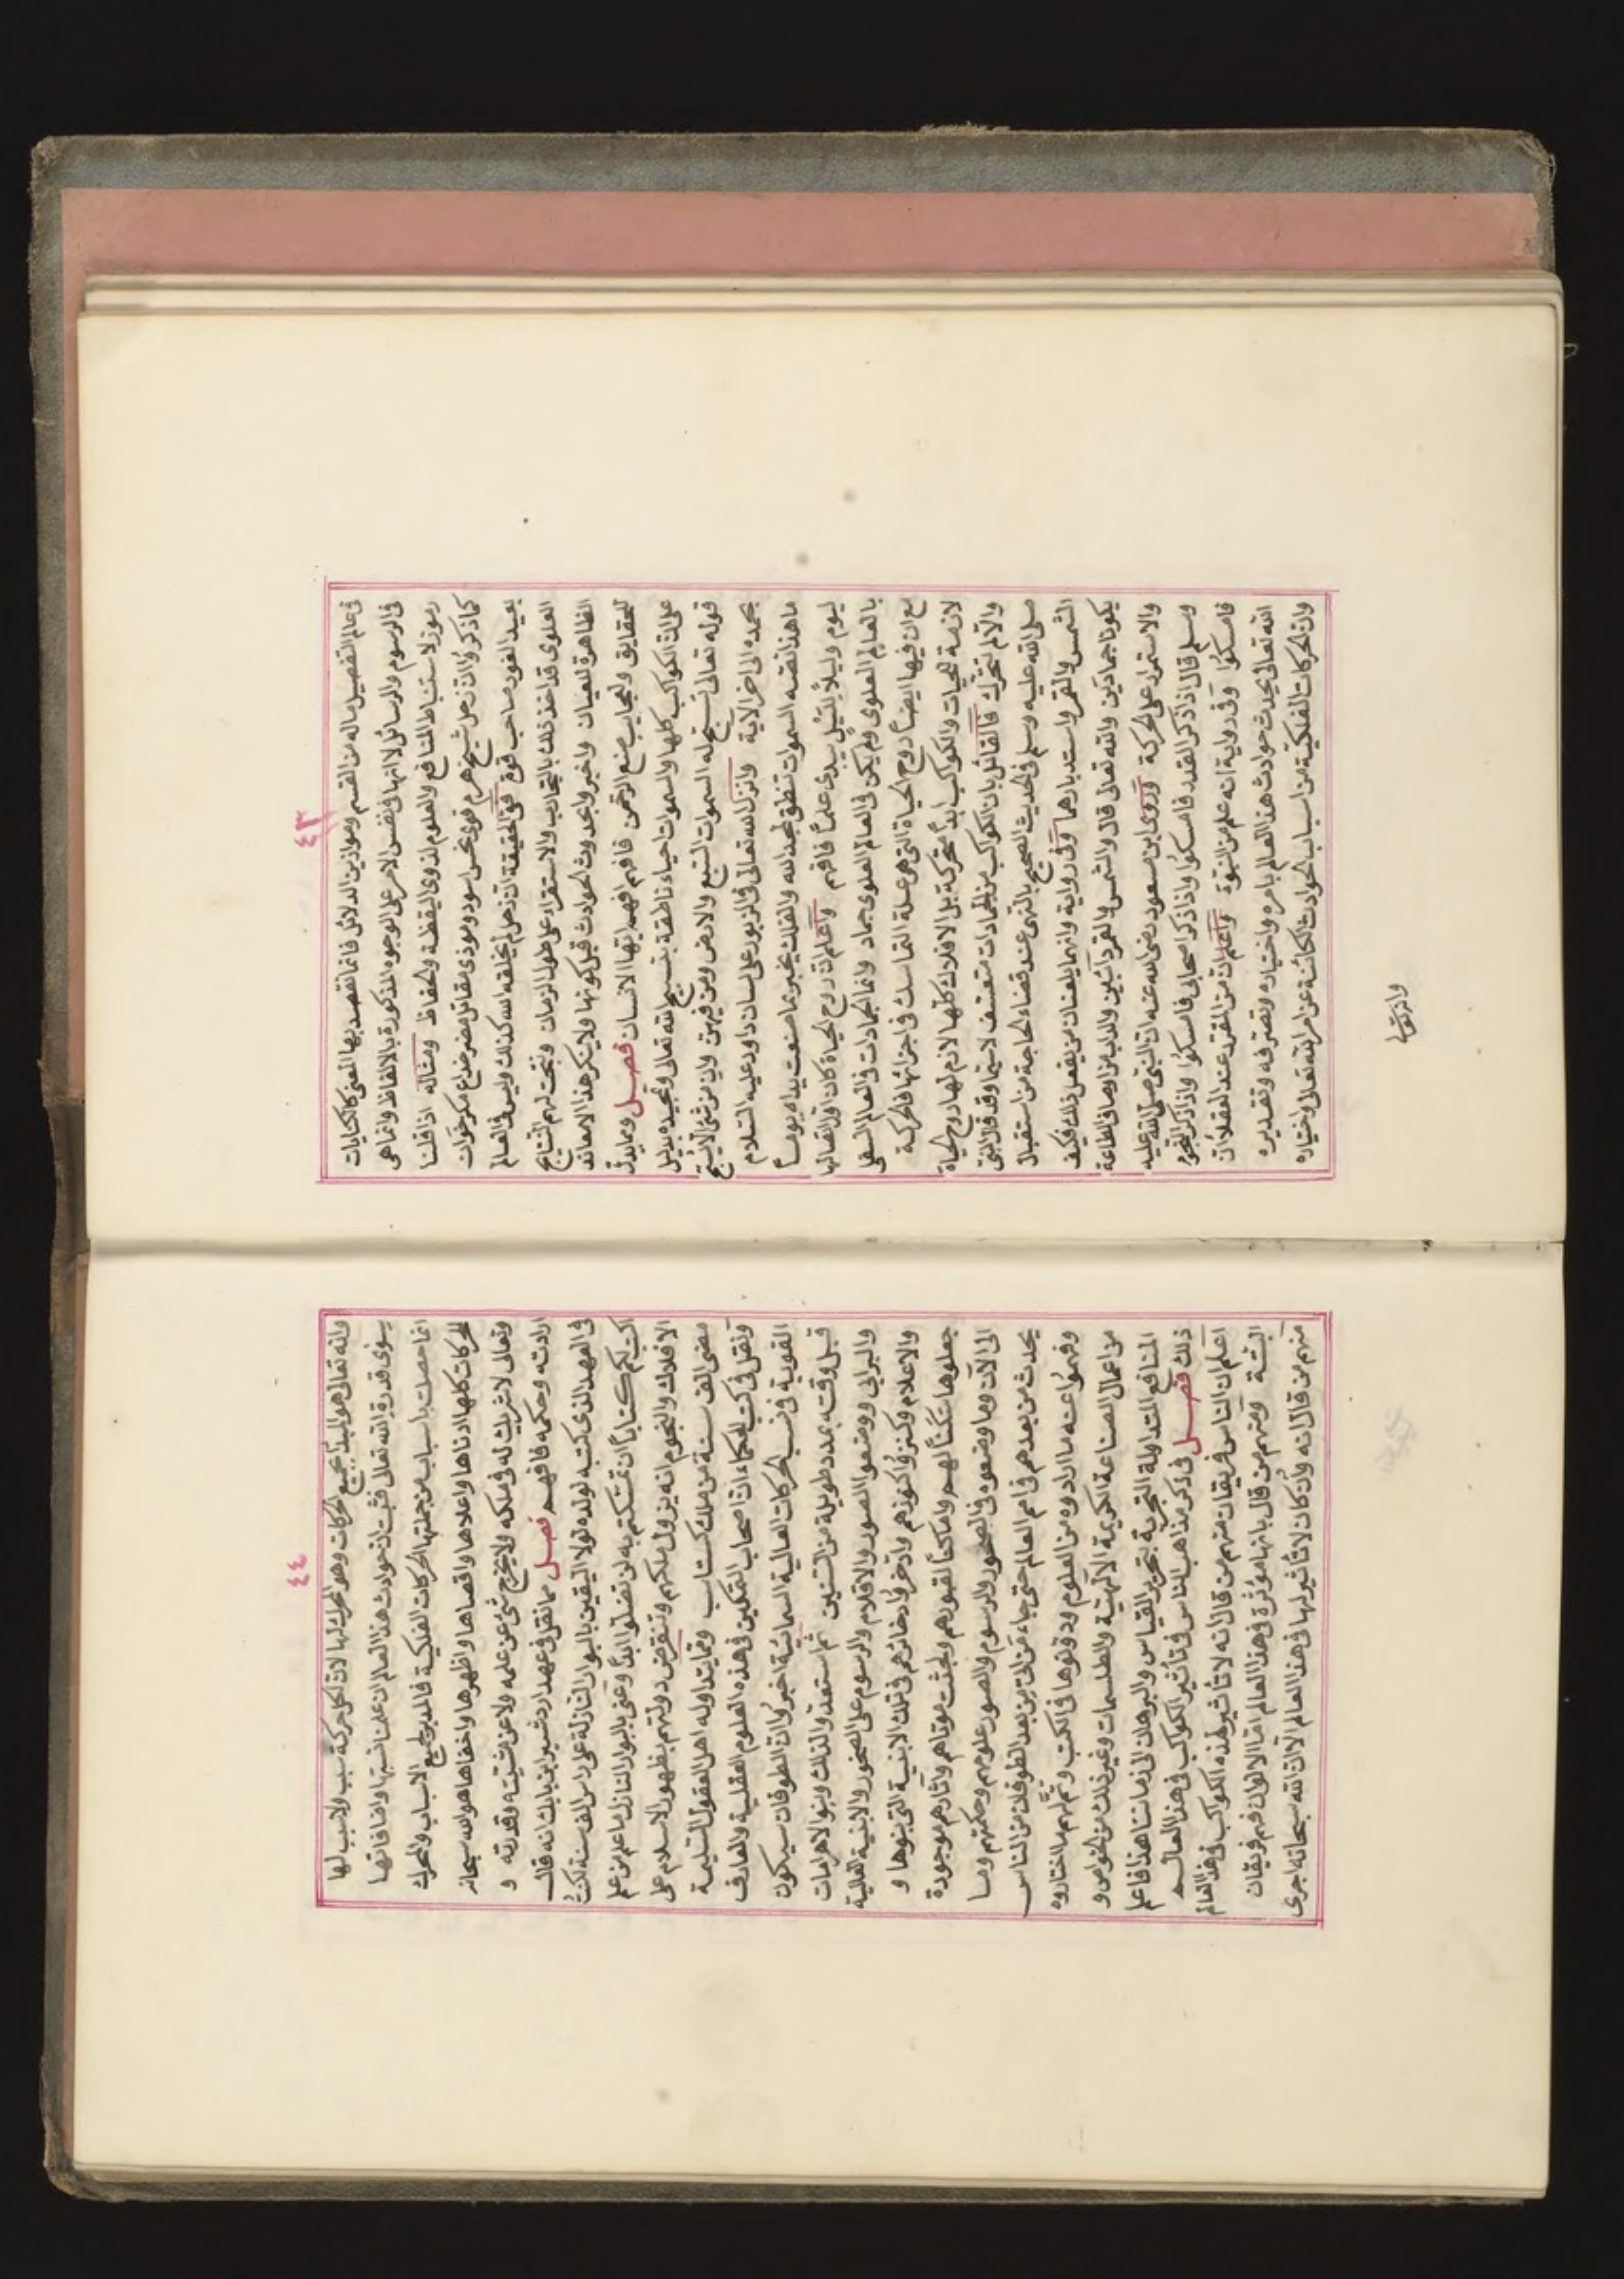 ٤٣
فى عالم التفصيل ماله من القسم وموازين الدلائل فانما نقصد بها المعنى كالكنايات
فى الرسوم والرسائل لا انها فى نفس الامر على الوجوه المذكورة بالالفاظ وانما هى
رموز لاستنباط المنافع والعلوم لذوى اليقظة والحفاظ ومثاله اذا قلنا
كما ذكروا ان زحل شيخ هرم قوى نحس اسود وموذى مقاتل مضر خداع مكر خوان
بعيد الغور صاحب قوة ففى الحقيقة ان زحل لم يخلقه الله كذلك وليس فى العالم
العلوى قد اخذ ذلك بالتجارب والاستقراء على طول الزمان ونجت لهم النتايج
الظاهرة للعيان واخبروا بحدوث الحوادث قبل كونها ولا ينكر هذا الا معاند
للحقايق ولعجايب صنع الرحمن فافهم افهم ايها الانسان فصل ومما يدل
على ان الكواكب كلها والسموات احياء ناطقة بتسبيح الله تعالى وتمجيده بدليل
قوله تعالى تسبح له السموات السبع والارض ومن فيهن وان من شئ الا يسبح
بحمده الى اخر الاية وانزل الله تعالى فى الزبور على لسان داود عليه السلام
ما هذا نصه السموات تنطق بمجد الله والفلك يخبر بما صنعت يداه يوماً
ليوم وليلاً لليل يبدى علماً فافهم واعلم ان روح الحياة كان اول اتصالها
بالعالم العلوى ولم يكن فى العالم العلوى جماد وانما الجمادات فى العالم السفلى
مع ان فيها ايضاً روح الحياة التى هى علة التماسك فى اجزائها فالحركة
لازمة للحيات والكواكب ابداً متحركة بل الافلاك كلها لازم لها روح الحياة
والا لم تتحرك فالقائل بان الكواكب من الجمادات متعسف لاسيما وقد قال النبى
صلى الله عليه وسلم فى الحديث الصحيح بالنهى عند قضاء الحاجة من استقبال
الشمس والقمر واستدبارهما وفى رواية وانهما يلعنان من يفعل ذلك فكيف
يكونا جمادين والله تعالى قال والشمس والقمر دآئبين والداب من اوصاف الطاعة
والاستمرار على الحركة وروى ابن مسعود رضى الله عنه ان النبى صلى الله عليه
وسلم قال اذا ذكر القدر فامسكوا واذا ذكر اصحابى فامسكوا واذا ذكر النجوم
فامسكوا وفى رواية انه علم من النبوة واعلم ان من المقرر عند العقلاء ان
الله تعالى يحدث حوادث هذا العالم بامره واختياره وتصرفه وتقديره
وان الحركات الفلكية من اسباب الحوادث الكائنة عن امر الله تعالى واختياره
٤٤
وانه تعالى هو المبدأ لجميع الحركات وهو المحرك لها لان لكل حركة سبب ولا سبب لها
سوى قدرة الله تعالى فثبت ان حوادث هذا العالم ان علمنا نسبتها واضافاتها
انما حصلت باسباب من جملتها الحركات الفلكية فالمدبر لجميع الاسباب والمحرك
للحركات كلها ادناها واعلاها واقصاها واظهرها واخفاها هو الله سبحانه
وتعالى لا شريك له فى ملكه ولا يخرج شئ عن علمه ولا عن مشيته وقدرته و
ارادته وحكمه فافهم فصل مما نقل فى عهد اردشير ابن بابك انه قال
فى العهد الذى كتبه لولده لولا اليقين بالبوار النازل على راس الف سنة لكنت
اكتب لكم كتاباً ان تمسكتم به لن تضلوا ابداً وعنى بالبوار النازل ما علم من علم
الافلاك والنجوم انه يزول ملكهم وتنقرض دولتهم بظهور الاسلام على
مضى الف سنة من ملك كستاسب ومما يتداوله اهل العقول السليمة
ونقل فى كتب الحكماء ان اصحاب التمكين فى هذه العلوم العقلية والمعارف
القوية فى نسب الحركات العالية السمائية اخبروا ان الطوفان سيكون
قبل وقته بمدد طويلة من السنين ثم استعدوا لذلك وبنوا الاهرامات
والبرابى ووضعوا الصور والاقلام والرسوم على الصخور والابنية العالية
والاعلام وكنزوا كنوزهم وادخروا ذخائرهم فى تلك الابنية التى بنوها و
جعلوها سكناً لهم واماكناً لقبورهم ولجثث موتاهم واثارهم موجودة
الى الآن وما وضعوه فى الصخور والرسوم والصور علومهم وحكمتهم وما
يحدث من بعدهم فى امر العالم حتى جاء من اتى من بعد الطوفان من الناس
وفهموا عنه ما ارادوه من العلوم ودونوها فى الكتب وتم لهم ما اختاروه
من اعمال الصناعة الكريمة الآلهية والطلسمات وغير ذلك من الخواص و
المنافع المتداولة التجربة بتحرير القياس والبرهان الى زماننا هذا فاعلم
ذلك فصل فى ذكر مذاهب الناس فى تأثير الكواكب فى هذا العالم
اعلم ان الناس فريقان منهم من قال انه لا تاثير لهذه الكواكب فى هذا العالم
البتة ومنهم من قال بانها مؤثرة فى هذا العالم اما الاولون فهم فريقان
منهم من قال انه وان كان لا تاثير لها فى هذا العالم الا ان الله سبحانه اجرى